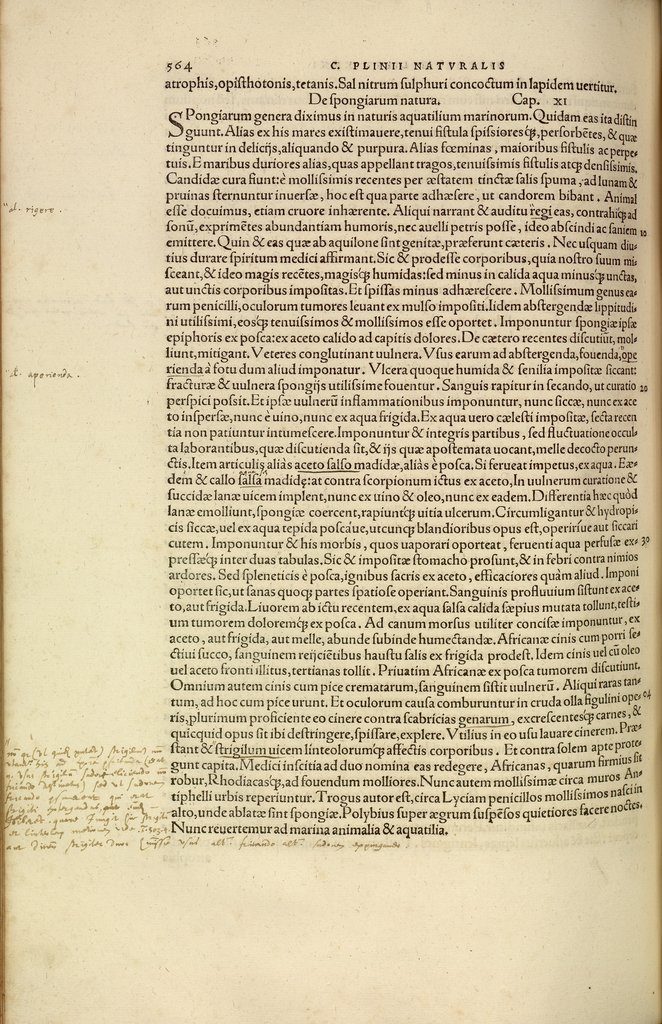 564 C. PLINII NATVRALIS
atrophis, opisthotonis, tetanis. Sal nitrum sulphuri concoctum in lapidem uertitur.
De spongiarum natura. Cap. XI
SPongiarum genera diximus in naturis aquatilium marinorum. Quidam eas ita distin
guunt. Alias ex his mares existimauere, tenui fistula spissioresq́;, persorbẽtes, & quæ
tinguntur in delicijs, aliquando & purpura. Alias fœminas, maioribus fistulis ac perpe-
tuis. E maribus duriores alias, quas appellant tragos, tenuissimis fistulis atq; densissimis.
Candidæ cura fiunt: è mollissimis recentes per æstatem tinctæ salis spuma, ad lunam &
pruinas sternuntur inuersæ, hoc est qua parte adhæsere, ut candorem bibant. Animal
"al. rigere.
esse docuimus, etiam cruore inhærente. Aliqui narrant & auditu regi eas, contrahiq; ad
sonũ, exprimẽtes abundantiam humoris, nec auelli petris posse, ideo abscindi ac saniem 10
emittere. Quin & eas quæ ab aquilone sint genitæ, præferunt cæteris. Nec usquam diu-
tius durare spiritum medici affirmant. Sic & prodesse corporibus, quia nostro suum mi-
sceant, & ideo magis recẽtes, magisq́; humidas: sed minus in calida aqua minusq́; unctas,
aut unctis corporibus impositas. Et spissas minus adhærescere. Mollissimum genus ea-
rum penicilli, oculorum tumores leuant ex mulso impositi. Iidem abstergendæ lippitudi-
ni utilissimi, eosq́; tenuissimos & mollissimos esse oportet. Imponuntur spongiæ ipsæ
epiphoris ex posca: ex aceto calido ad capitis dolores. De cætero recentes discutiũt, mol-
liunt, mitigant. Veteres conglutinant uulnera. Vsus earum ad abstergenda, fouenda, ope
al. aperienda.
rienda à fotu dum aliud imponatur. Vlcera quoque humida & senilia impositæ siccant:
fracturæ & uulnera spongijs utilissime fouentur. Sanguis rapitur in secando, ut curatio 20
perspici possit. Et ipsæ uulnerũ inflammationibus imponuntur, nunc siccæ, nunc ex ace
to inspersæ, nunc è uino, nunc ex aqua frigida. Ex aqua uero cælesti impositæ, secta recen
tia non patiuntur intumescere. Imponuntur & integris partibus, sed fluctuatione occul-
ta laborantibus, quæ discutienda sit, & ijs quæ apostemata uocant, melle decocto perun-
ctis. Item articulis aliàs aceto salso madidæ, aliàs è posca. Si ferueat impetus, ex aqua. Eæ-
dem & callo salsa madidę: at contra scorpionum ictus ex aceto, In uulnerum curatione &
succidæ lanæ uicem implent, nunc ex uino & oleo, nunc ex eadem. Differentia hæc quòd
lanæ emolliunt, spongiæ coercent, rapiuntq́; uitia ulcerum. Circumligantur & hydropi-
cis siccæ, uel ex aqua tepida posca'ue, utcunq; blandioribus opus est, operiri'ue aut siccari
cutem. Imponuntur & his morbis, quos uaporari oporteat, feruenti aqua perfusæ ex- 30
pressæq́; inter duas tabulas. Sic & impositæ stomacho prosunt, & in febri contra nimios
ardores. Sed spleneticis è posca, ignibus sacris ex aceto, efficaciores quàm aliud. Imponi
oportet sic, ut sanas quoq; partes spatiose operiant. Sanguinis profluuium sistunt ex ace-
to, aut frigida. Liuorem ab ictu recentem, ex aqua salsa calida sæpius mutata tollunt, testi-
um tumorem doloremq́; ex posca. Ad canum morsus utiliter concisæ imponuntur, ex
aceto, aut frigida, aut melle, abunde subinde humectandæ. Africanæ cinis cum porri se-
ctiui succo, sanguinem reijciẽtibus haustu salis ex frigida prodest. Idem cinis uel cũ oleo
uel aceto fronti illitus, tertianas tollit. Priuatim Africanæ ex posca tumorem discutiunt.
Omnium autem cinis cum pice crematarum, sanguinem sistit uulnerũ. Aliqui raras tan-
tum, ad hoc cum pice urunt. Et oculorum causa comburuntur in cruda olla figulini ope- 40
ris, plurimum proficiente eo cinere contra scabricias genarum, excrescentesq́; carnes, &
quicquid opus sit ibi destringere, spissare, explere. Vtilius in eo usu lauare cinerem. Præ-
stant & strigilum uicem linteolorumq́; affectis corporibus. Et contra solem apte prote-
gunt capita. Medici inscitia ad duo nomina eas redegere, Africanas, quarum firmius sit
robur, Rhodiacasq́;, ad fouendum molliores. Nunc autem mollissimæ circa muros An-
tiphelli urbis reperiuntur. Trogus autor est, circa Lyciam penicillos mollissimos nasci in
alto, unde ablatæ sint spongiæ. Polybius super ægrum suspẽsos quietiores facere noctes.
Nunc reuertemur ad marina animalia & aquatilia.